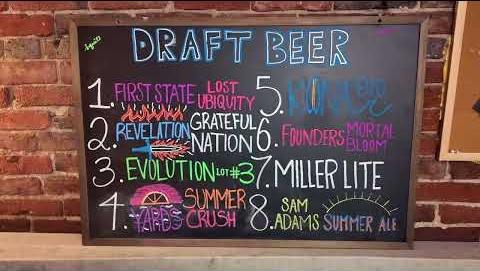 DRAFT BEER
1. FIRST STATE LOST UBIQUITY
2. REVELATION GRATEFUL NATION
3. EVOLUTION LOT #3
4. YARDS SUMMER CRUSH
5.
6. FOUNDERS MORTAL BLOOM
7. MILLER LITE
8 SAM ADAMS SUMMER ALE